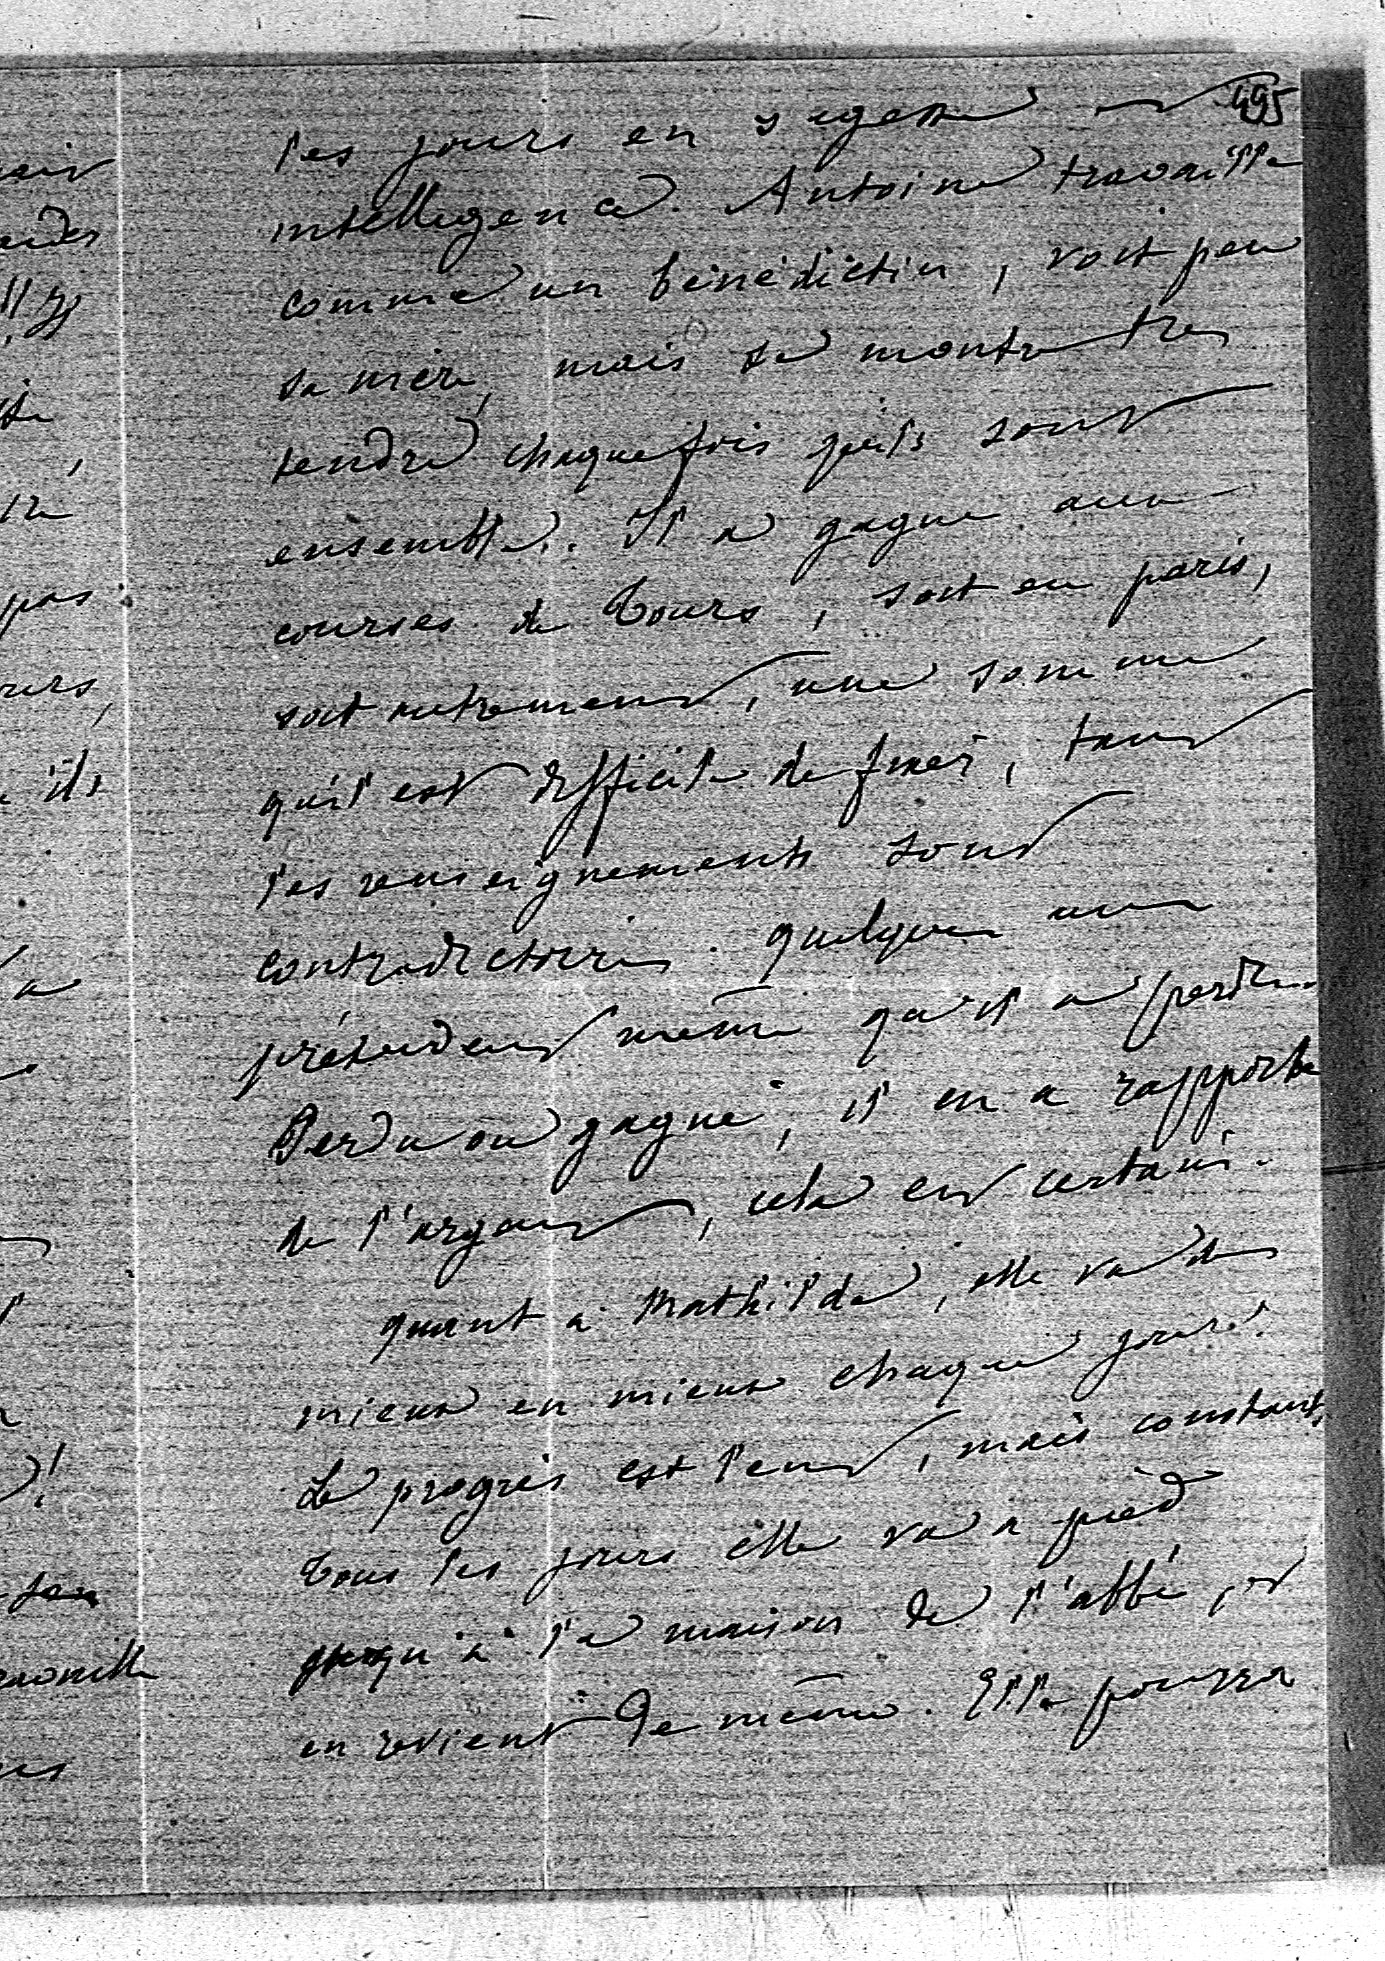 495
les jours en sagesse et
intelligence. Antoine travaille
comme un bénédictin, voit peu
sa mère, mais se montre très
tendre chaque fois qu'ils sont
ensemble. Il a gagné aux
courses de Tours, soit en paris,
soit autrement, une somme
qu'il est difficile de fixer, tant
les renseignements sont
contradictoires. quelques uns
prétendent même qu'il a perdu.
Perdu ou gagné, il en a rapporté
de l'argent, cela est certain.
quant à Mathilde, elle va de
mieux en mieux chaque jour.
Le progrès est lent, mais constant,
Tous les jours elle va à pied
jusqu'à la maison de l'abbé, et
en revient de même. Elle pourra
pas
ils